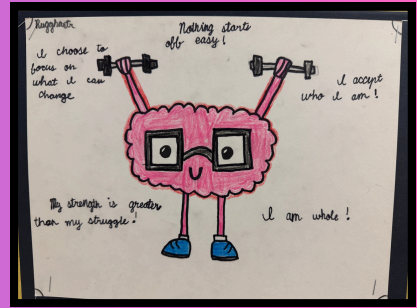 Nothing starts
off easy!
I choose to
focus on
what I can
change
I accept
who I am!
My strength is greater
than my struggle!
I am whole!